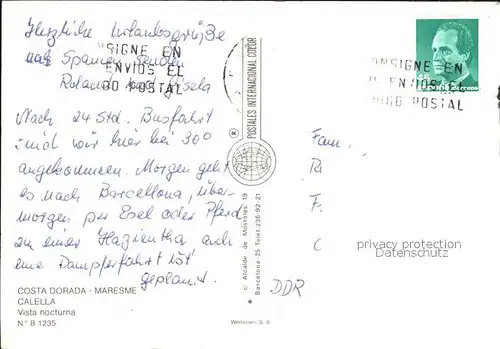 Herzliche Urlaubsgrüße
aus Spanien senden
Roland und Gisela
Nach 24 Std. Busfahrt
sind wir hier bei 30°
angekommen. Morgen geht
es nach Barcellona, über-
morgen per Esel oder Pferd
zu einer Hazientha auch
eine Dampferfahrt ist
geplant.
COSTA DORADA - MARESME
CALELLA
Vista nocturna
N.° B 1235
"SIGNE EN
ENVIOS EL
GO POSTAL
POSTALES INTERNACIONAL COLOR
c/ Alcalde de Móstoles, 19
Barcelona 25 Teléf. 236-92-21
Wertecrom, S. A.
NSIGNE EN
ENVIOS EL
IGO POSTAL
Correos
Fam.
F.
C
DDR
privacy protection
Datenschutz